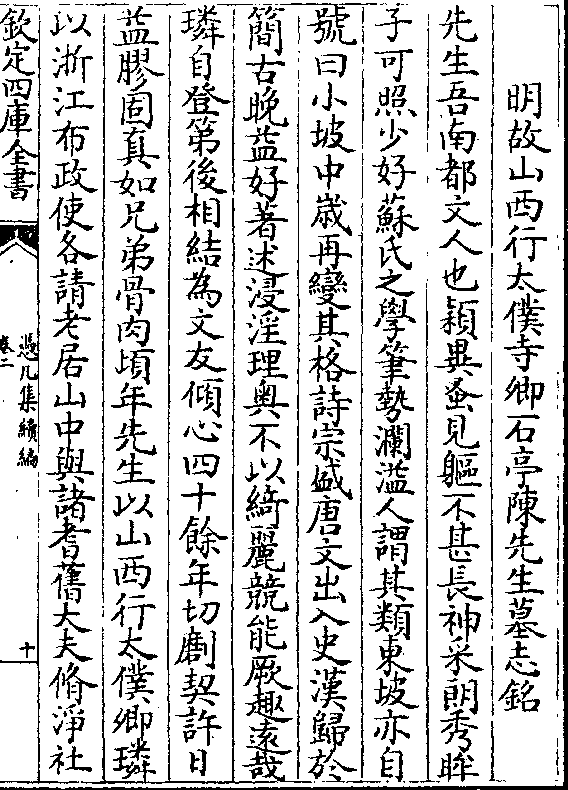 明故山西行太僕寺卿石亭陳先生墓志銘
先生吾南都文人也穎異蚤見軀不甚長神采朗秀眸
子可照少好蘇氏之學筆勢瀾溢人謂其類東坡亦自
號曰小坡中歲再變其格詩宗盛唐文出入史漢歸於
簡古晚益好著述浸淫理奥不以綺麗競能厥趣遠哉
璘自登第後相結為文友傾心四十餘年切劘契許日
益膠固真如兄弟骨肉頃年先生以山西行太僕卿璘
以浙江布政使各請老居山中與諸耆舊大夫脩淨社
欽定四庫全書
憑几集續編
卷二
十